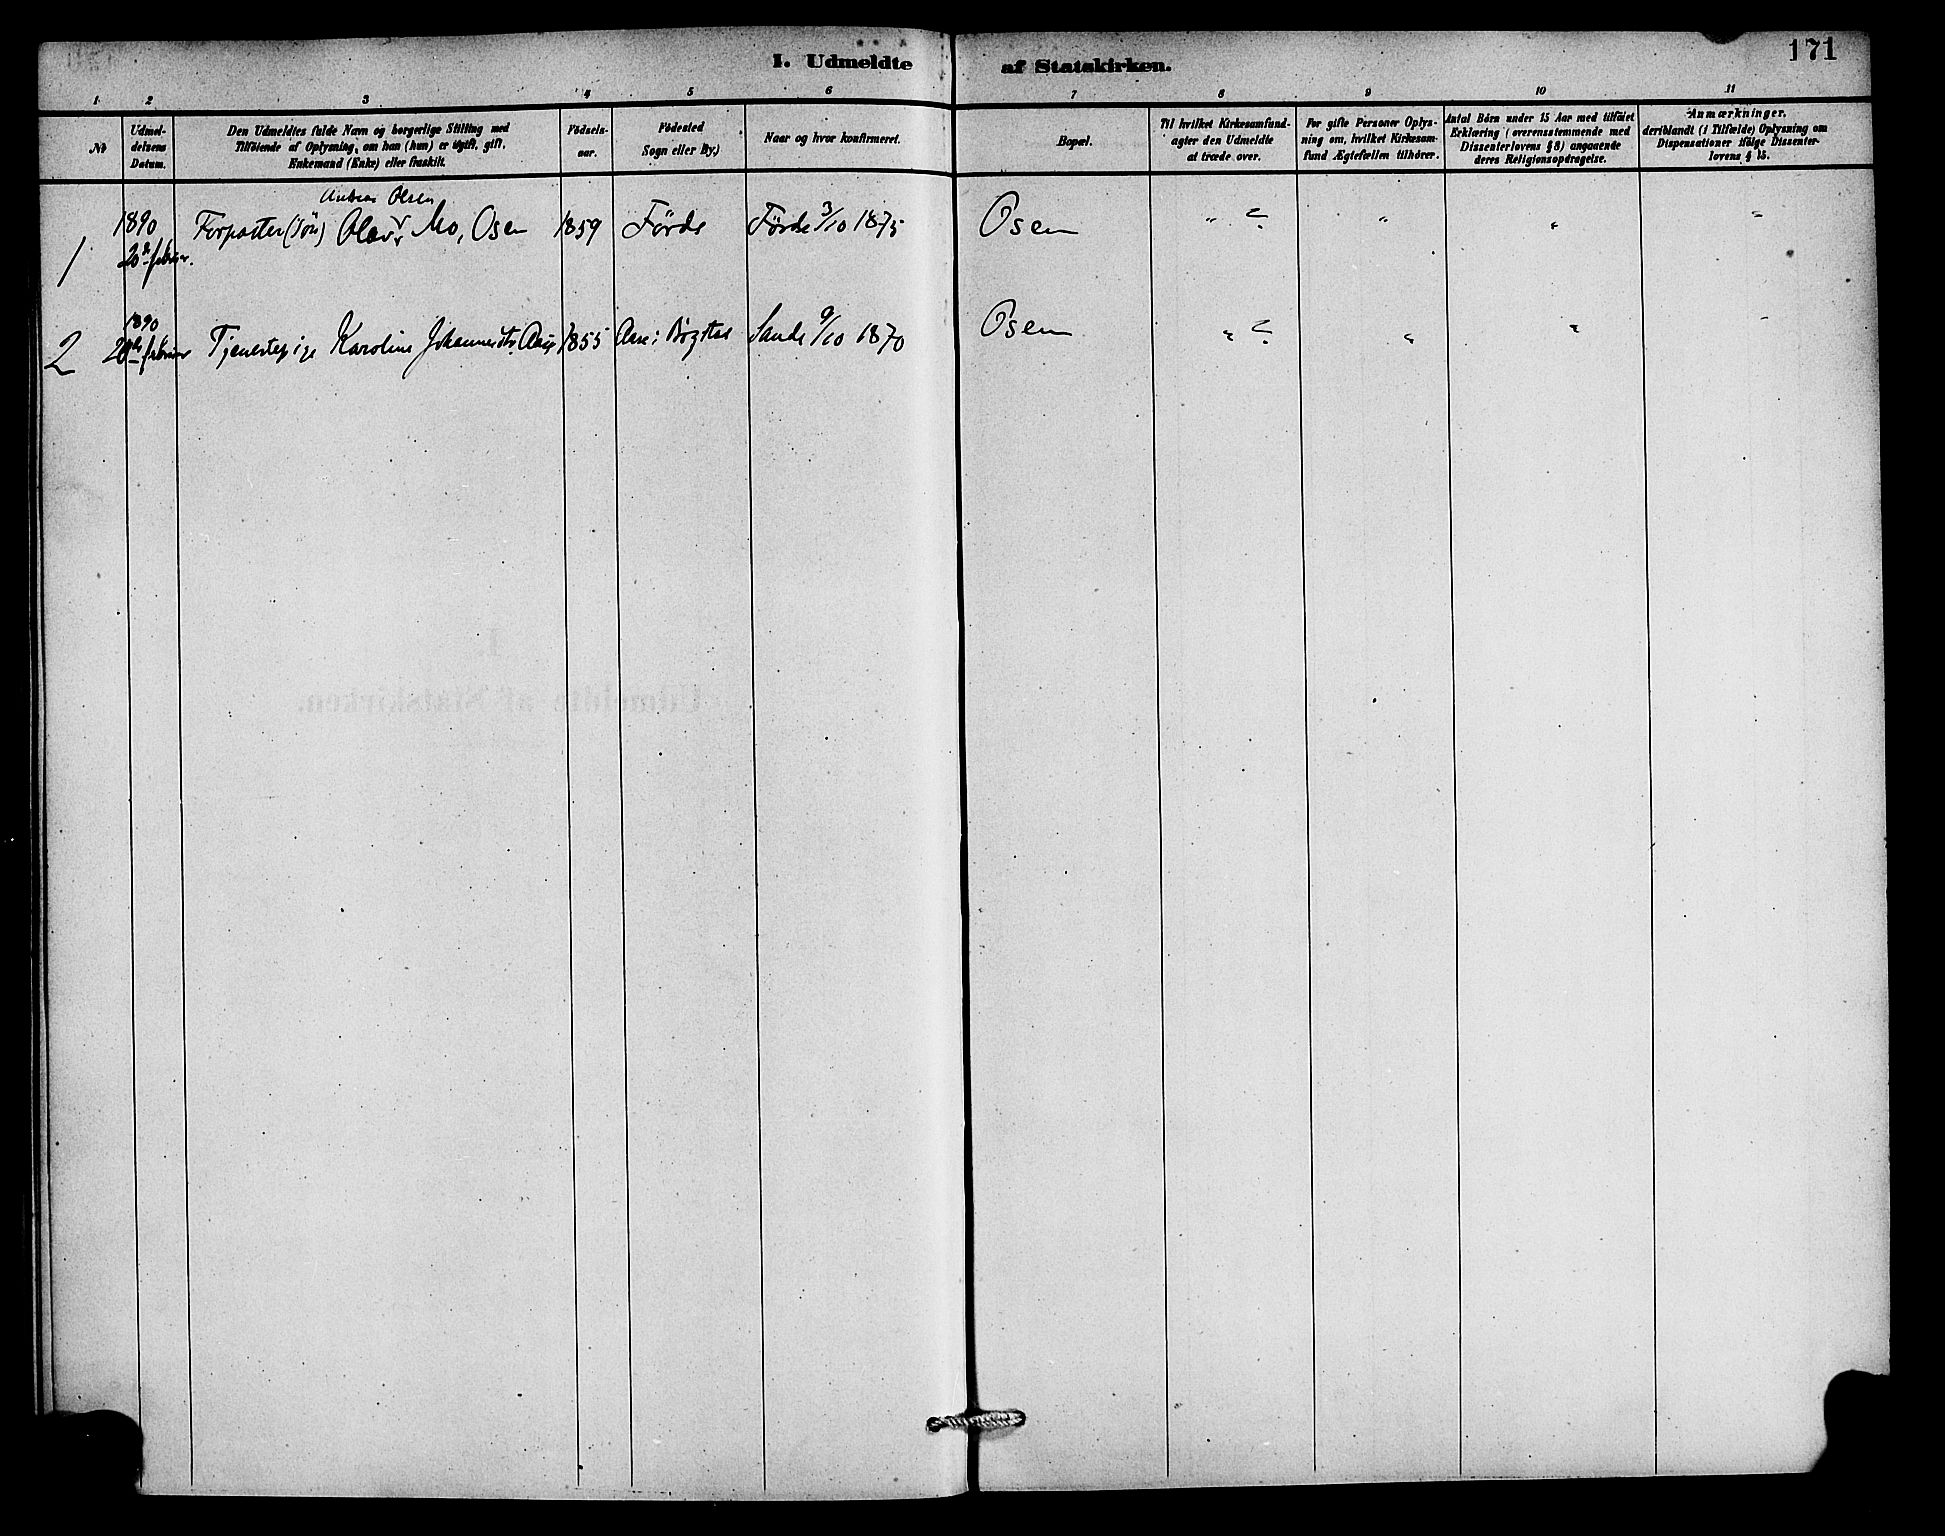 171
I. Udmeldte af Statskirken.
1 2 3 4 5 6 7 8 9 10 11
№
Udmel-
delsens
Datum.
Den Udmeldtes fulde Navn og borgerlige Stilling med
Tilföiende af Oplysning, om han (hun) er ugift, gift,
Enkemand (Enke) eller fraskilt.
Födsels-
aar.
Födested
Sogn eller By.)
Naar og hvor konfirmeret.
Bopæl.
Til hvilket Kirkesamfund-
agter den Udmeldte
at træde over.
For gifte Personer Oplys-
ning om, hvilket Kirkesam-
fund Ægtefællen tilhörer.
Antal Börn under 15 Aar med tilföiet
Erklæring (overensstemmende med
Dissenterlovens § 8) angaaende
deres Religionsopdragelse.
Anmærkninger,
deriblandt (i Tilfælde) Oplysning om
Dispensationer ifölge Dissenter-
lovens § 15.
Andreas Olsen
1 1890 Forpagter (Sön) Olav Mo, Osen 1859 Förde Förde 3/10 1875 Osen " ? " " "
20de februar.
2 1890 Tjenestepige Karoline Johannesdtr. 1855 Aase i Bygstad Sande 9/10 1870 Osen " ? " " "
20de februar